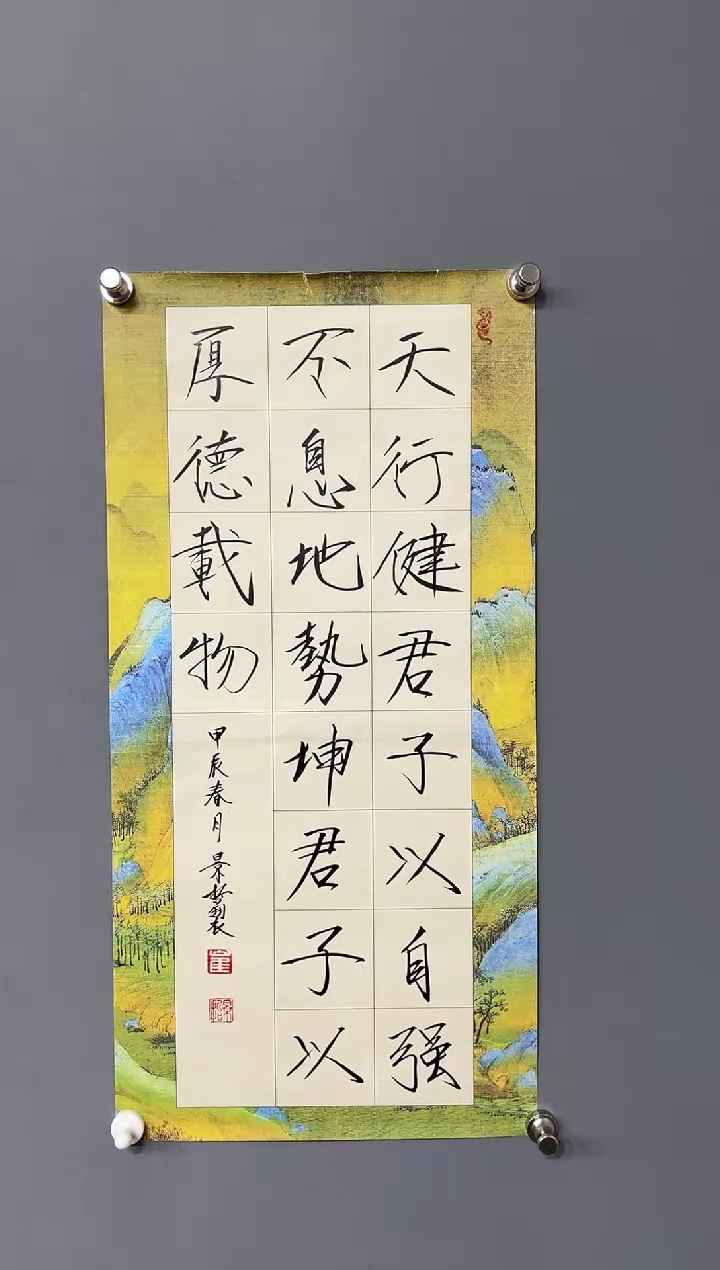 天行健君子以自强
不息地勢坤君子以
厚德載物
甲辰春月